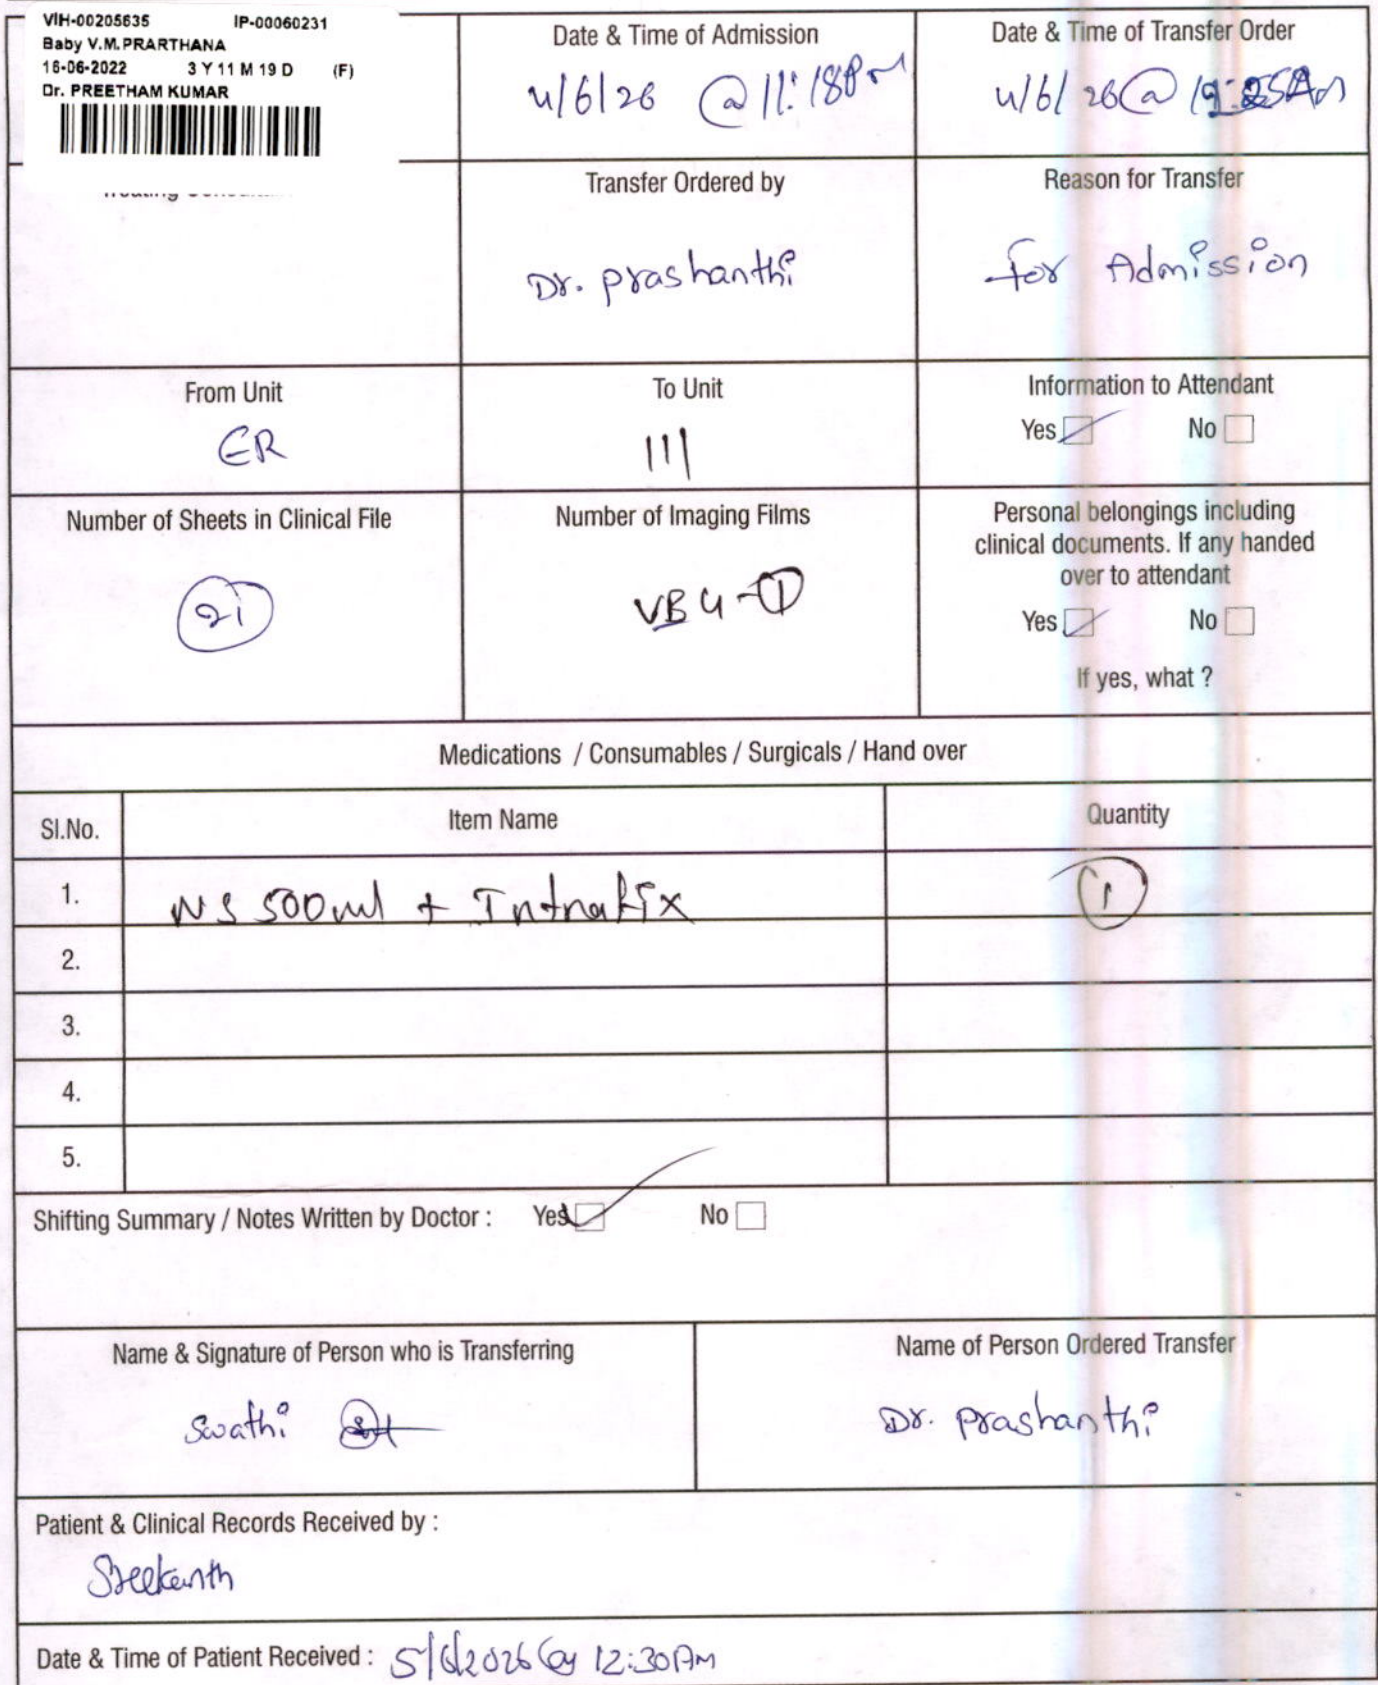 VIH-00205635 IP-00060231
Baby V.M.PRARTHANA
16-06-2022 3 Y 11 M 19 D (F)
Dr. PREETHAM KUMAR
Date & Time of Admission
4/6/26 @ 11:18PM
Date & Time of Transfer Order
4/6/26 @
Transfer Ordered by
Dr. prashanthi
Reason for Transfer
for Admission
From Unit
ER
To Unit
111
Information to Attendant
Yes No
Number of Sheets in Clinical File
21
Number of Imaging Films
VBG-1
Personal belongings including
clinical documents. If any handed
over to attendant
Yes No
If yes, what ?
Medications / Consumables / Surgicals / Hand over
Sl.No. Item Name Quantity
1. NS 500ml + Intrafix 1
2.
3.
4.
5.
Shifting Summary / Notes Written by Doctor : Yes No
Name & Signature of Person who is Transferring
Swathi
Name of Person Ordered Transfer
Dr. prashanthi
Patient & Clinical Records Received by :
Sreekanth
Date & Time of Patient Received : 5/6/2026 @ 12:30AM